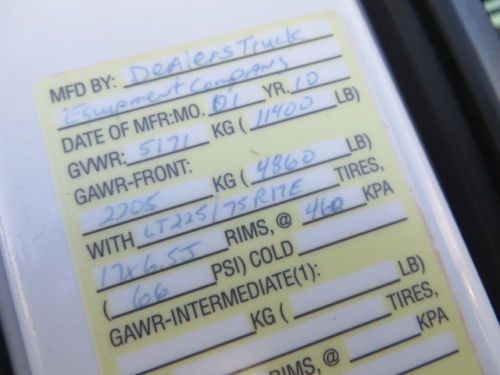 MFD BY: Dealers Truck
Equipment Company
DATE OF MFR:MO. 01 YR. 10
GVWR: 5171 KG ( 11400 LB)
GAWR-FRONT:
2205 KG ( 4860 LB)
WITH LT225/75R17E TIRES,
17x6.5J RIMS, @ 460 KPA
( 66 PSI) COLD
GAWR-INTERMEDIATE(1):
KG ( LB)
TIRES,
RIMS, @ KPA